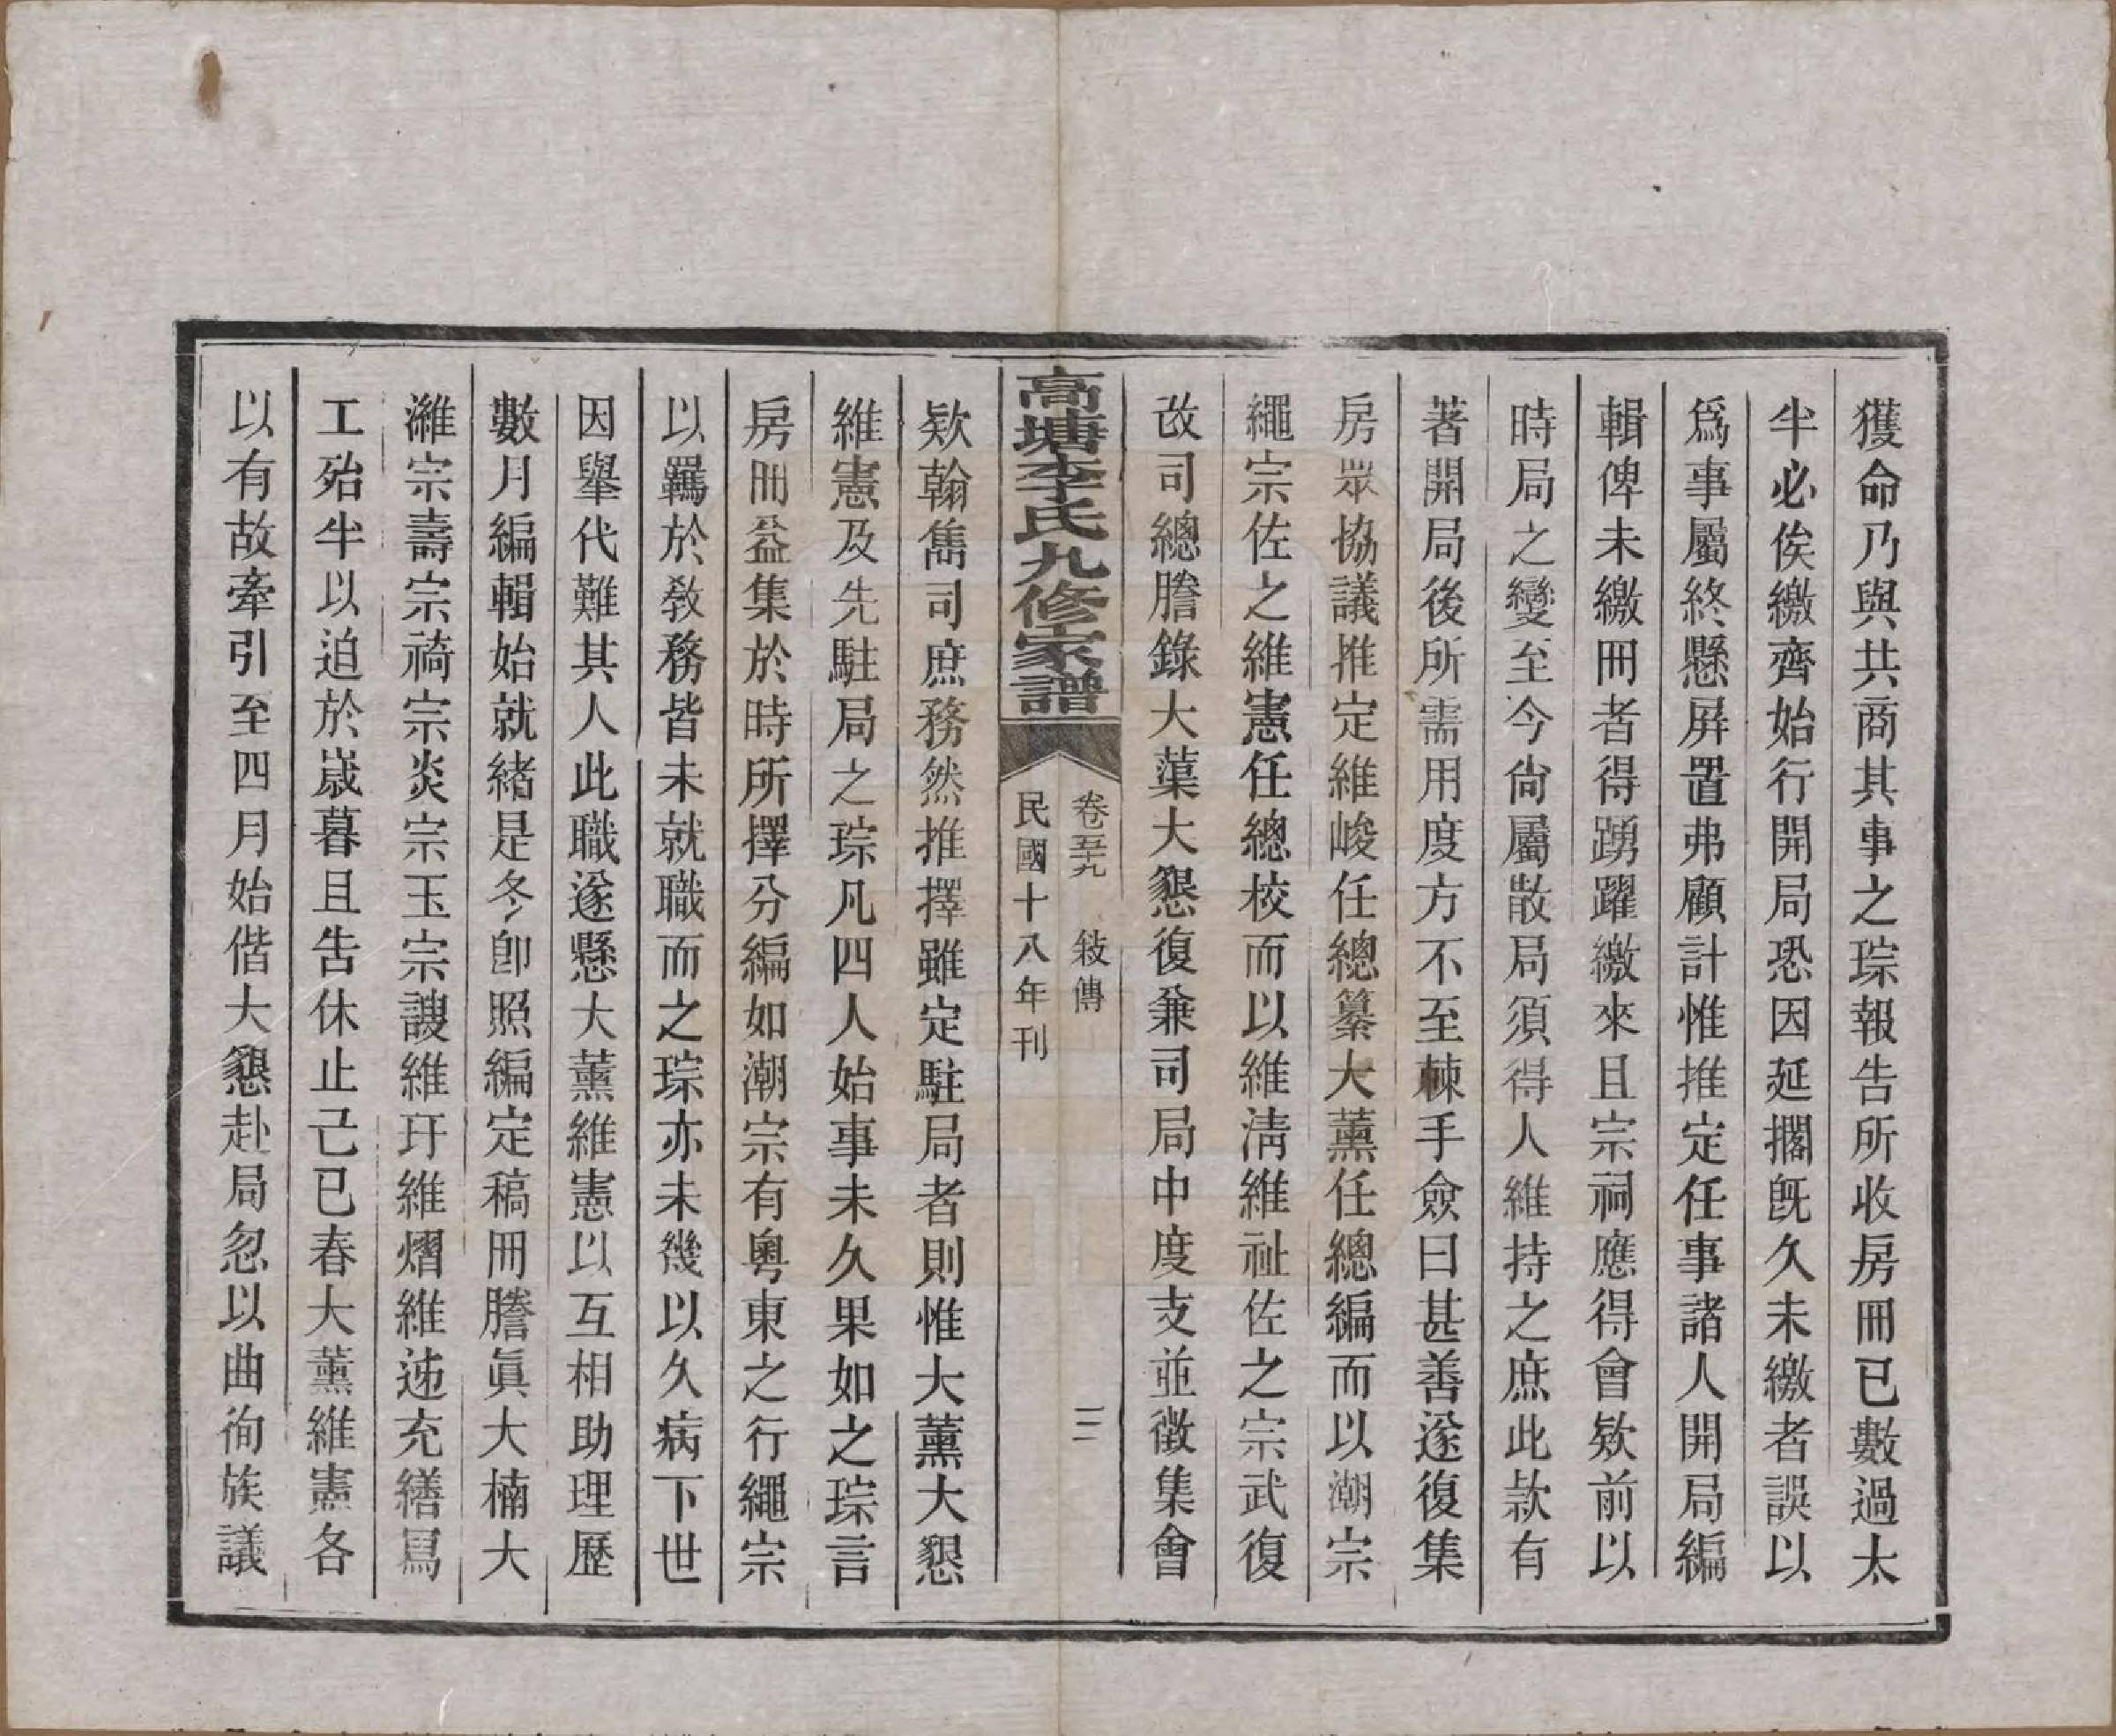 獲命乃與共商其事之琮報告所收房冊已數過太
半必俟繳齊始行開局恐因延擱既久未繳者誤以
爲事屬終懸屏置弗顧計惟推定任事諸人開局編
輯俾未繳冊者得踴躍繳來且宗祠應得會欵前以
時局之變至今尙屬散局須得人維持之庶此款有
著開局後所需用度方不至棘手僉曰甚善遂復集
房眾協議推定維峻任總纂大薰任總編而以潮宗
繩宗佐之維憲任總校而以維淸維祉佐之宗武復
改司總謄錄大蕖大懇復兼司局中度支並徵集會
高塘李氏九修家譜
卷五九 敍傳 三
民國十八年刊
欵翰雋司庶務然推擇雖定駐局者則惟大薰大懇
維憲及先駐局之琮凡四人始事未久果如之琮言
房冊益集於時所擇分編如潮宗有粵東之行繩宗
以羈於敎務皆未就職而之琮亦未幾以久病下世
因舉代難其人此職遂懸大薰維憲以互相助理歷
數月編輯始就緒是冬卽照編定稿冊謄眞大楠大
濰宗壽宗禕宗炎宗玉宗謏維玕維熠維迏充繕寫
工殆半以迫於嵗暮且告休止己巳春大薰維憲各
以有故牽引至四月始偕大懇赴局忽以曲徇族議